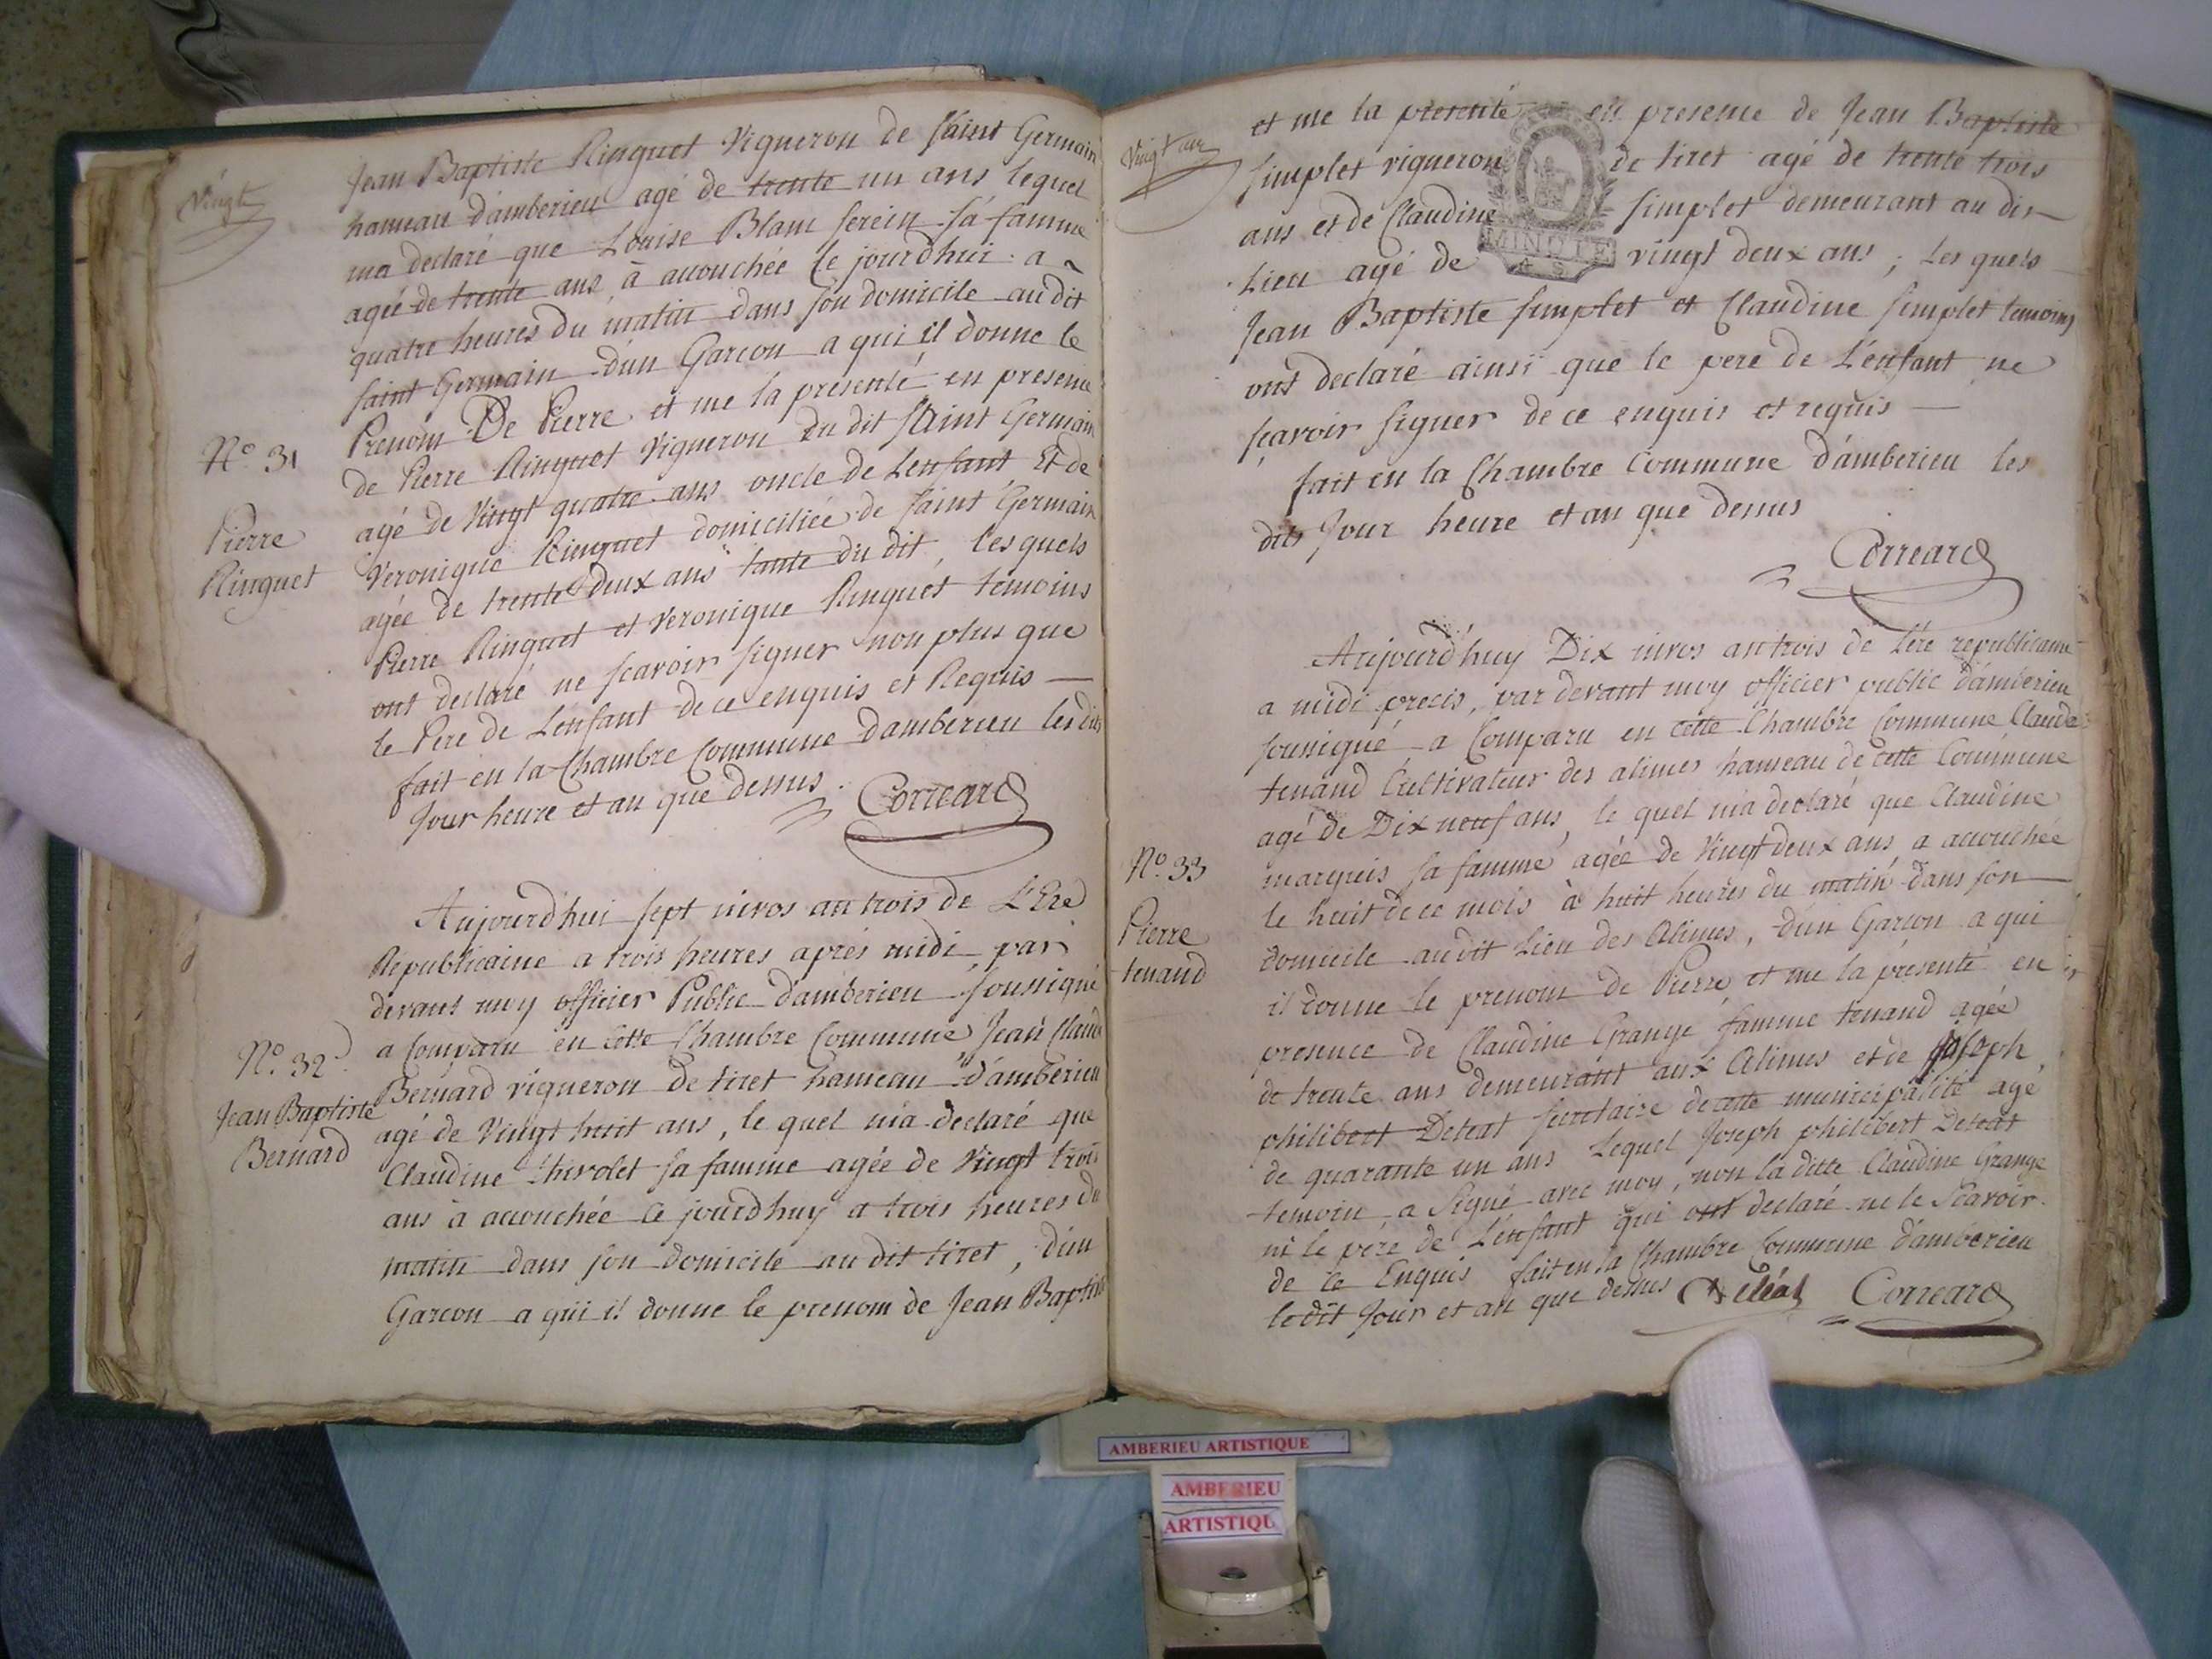 Vingt
Jean Baptiste Ringuet Vigneron de saint Germain
hameau d'amberieu agé de trente un ans lequel
ma declaré que Louise Blanc serein sa famme
agée de trente ans à accouchée ce jourdhui a
quatre heures du matin dans son domicile au dit
saint Germain d'un Garcon a qui il donne le
Prenom De Pierre et me la presenté en presence
de Pierre Ringuet Vigneron du dit saint Germain
agé de Vingt quatre ans oncle de Lenfant Et de
Veronique Ringuet domiciliée de saint Germain
agée de trente deux ans tante du dit, les quels
Pierre Ringuet et Veronique Ringuet temoins
ont declaré ne scavoir signer non plus que
le Pere de Lenfant de ce enquis et Requis
fait en la Chambre Commune damberieu les dits
Jour heure et an que dessus
Correard
N.º 31
Pierre
Ringuet
Aujourd'hui sept nivos an trois de L'Ere
Republicaine a trois heures aprés midi par
devant moy officier Public d'amberieu soussigné
a Comparu en cette Chambre Commune Jean Claude
Bernard vigneron de tiret hameau d'amberieu
agé de Vingt huit ans, le quel m'a declaré que
Claudine thivolet sa famme agée de Vingt trois
ans à accouchée ce jourdhuy a trois heures du
matin dans son domicile au dit tiret, d'un
Garcon a qui il donne le prenom de Jean Baptiste
N.º 32
Jean Baptiste
Bernard
Vingt un
et me la presenté en presence de Jean Baptiste
simplet vigneron de tiret agé de trente trois
ans et de Claudine simplet demeurant au dit
Lieu agé de vingt deux ans ; les quels
Jean Baptiste simplet et Claudine simplet temoins
ont declaré ainsi que le pere de L'enfant ne
scavoir signer de ce enquis et requis
fait en la Chambre Commune d'amberieu les
dits Jour heure et an que dessus
Correard
MINUTE
Aujourd'huy Dix nivos an trois de l'ére republicaine
a midi precis, par devant moy officier public d'amberieu
soussigné a Comparu en cette Chambre Commune Claude
tenand Cultivateur des alimes hameau de cette Commune
agé de Dix neuf ans, le quel m'a declaré que Claudine
marquis sa famme agée de Vingt deux ans a accouchée
le huit de ce mois à huit heures du matin dans son
domicile audit Lieu des Alimes, d'un Garcon a qui
il donne le prenom de Pierre et me la presenté en
presence de Claudine Grange famme tenand agée
de trente ans demeurant aux Alimes et de Joseph
philibert Deteat secretaire de cette municipalité agé
de quarante un ans Lequel Joseph philibert Deteat
temoin a signé avec moy, non la ditte Claudine Grange
ni le pére de L'enfant qui ont declaré ne le scavoir
de ce Enquis fait en la Chambre Commune d'amberieu
le dit Jour et an que dessus
Correard
N.º 33
Pierre
tenand
AMBERIEU ARTISTIQUE
AMBERIEU
ARTISTIQU